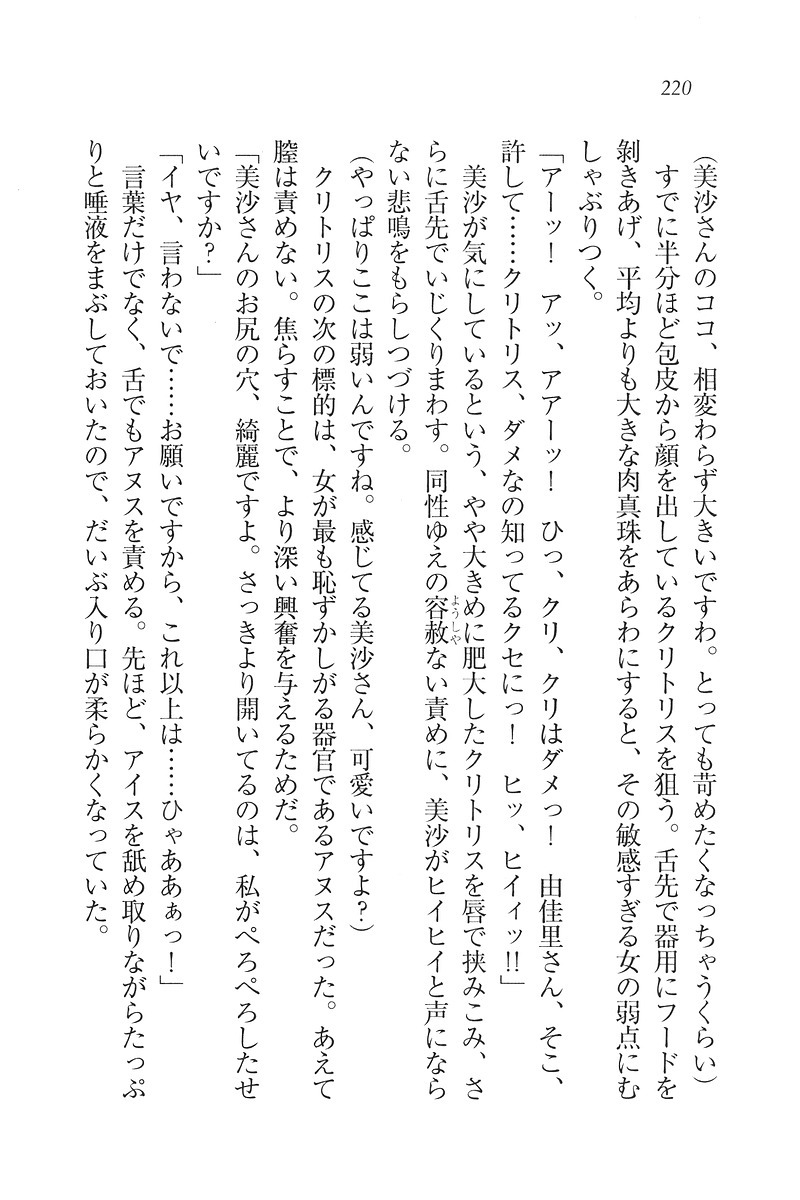 220
(美沙さんのココ、相変わらず大きいですわ。とっても苛めたくなっちゃうくらい)
すでに半分ほど包皮から顔を出しているクリトリスを狙う。舌先で器用にフードを
剝きあげ、平均よりも大きな肉真珠をあらわにすると、その敏感すぎる女の弱点にむ
しゃぶりつく。
「アーッ！　アッ、アアーッ！　ひっ、クリ、クリはダメっ！　由佳里さん、そこ、
許して……クリトリス、ダメなの知ってるクセにっ！　ヒッ、ヒイィッ!!」
美沙が気にしているという、やや大きめに肥大したクリトリスを唇で挟みこみ、さ
らに舌先でいじくりまわす。同性ゆえの容赦ようしゃない責めに、美沙がヒイヒイと声になら
ない悲鳴をもらしつづける。
(やっぱりここは弱いんですね。感じてる美沙さん、可愛いですよ？)
クリトリスの次の標的は、女が最も恥ずかしがる器官であるアヌスだった。あえて
膣は責めない。焦らすことで、より深い興奮を与えるためだ。
「美沙さんのお尻の穴、綺麗ですよ。さっきより開いてるのは、私がぺろぺろしたせ
いですか？」
「イヤ、言わないで……お願いですから、これ以上は……ひゃああぁっ！」
言葉だけでなく、舌でもアヌスを責める。先ほど、アイスを舐め取りながらたっぷ
りと唾液をまぶしておいたので、だいぶ入り口が柔らかくなっていた。